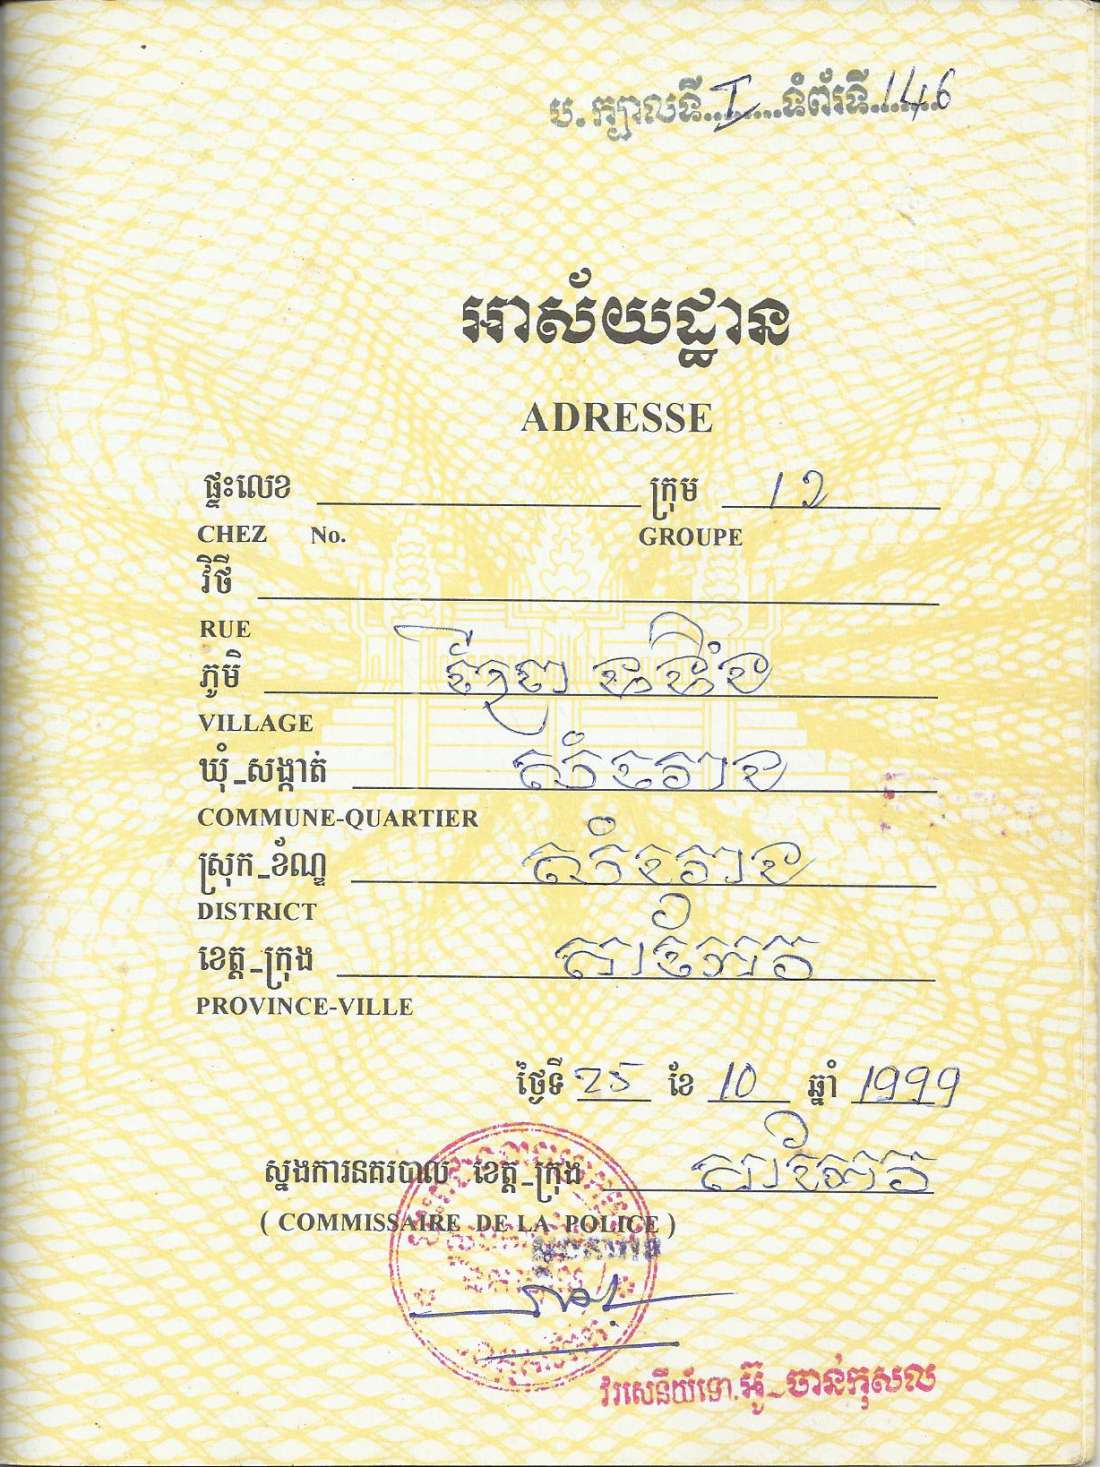 ប.ក្បាលទី I ទំព័រទី 146
អាស័យដ្ឋាន
ADRESSE
ផ្ទះលេខ ក្រុម 12
CHEZ No. GROUPE
វិថី
RUE
ភូមិ
VILLAGE
ឃុំ-សង្កាត់ សំរោង
COMMUNE-QUARTIER
ស្រុក-ខ័ណ្ឌ សំរោង
DISTRICT
ខេត្ត-ក្រុង តាកែវ
PROVINCE-VILLE
ថ្ងៃទី 25 ខែ 10 ឆ្នាំ 1999
ស្នងការនគរបាល ខេត្ត-ក្រុង តាកែវ
( COMMISSAIRE DE LA POLICE )
វរសេនីយ៍ទោ. អ៊ូ-ចាន់កុសល